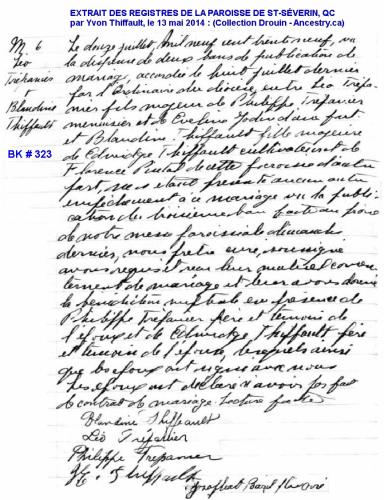 EXTRAIT DES REGISTRES DE LA PAROISSE DE ST-SÉVERIN, QC
par Yvon Thiffault, le 13 mai 2014 : (Collection Drouin - Ancestry.ca)
M. 6
Léo
Trépanier
&
Blandine
Thiffault
BK # 323
Le douze juillet, mil neuf cent trente neuf, vu
la dispense de deux bans de publication de
mariage, accordée le huit juillet dernier
par l'Ordinaire du diocèse, entre Léo Trépa-
nier fils majeur de Philippe Trépanier
menuisier et de Evelina d'une part
et Blandine Thiffault fille majeure
de Edwidge Thiffault cultivateur et de
Florence de cette paroisse d'autre
part, ne s'étant présenté aucun autre
empêchement à ce mariage vu la publi-
cation du troisième ban faite au prône
de notre messe paroissiale dimanche
dernier, nous prêtre curé, soussigné
avons requis et reçu leur mutuel consen-
tement de mariage et leur avons donné
la bénédiction nuptiale en présence de
Philippe Trépanier père et témoin de
l'époux et de Edwidge Thiffault père
et témoin de l'épouse, lesquels ainsi
que les époux ont signé avec nous
Les époux ont déclaré n'avoir pas fait
de contrat de mariage. Lecture faite
Blandine Thiffault
Léo Trépanier
Philippe Trépanier
Thiffault